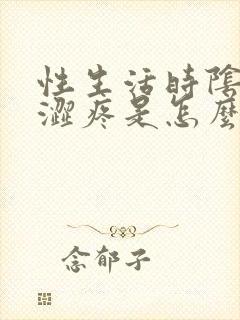 性生活時陰
澀疼是怎麼
念郁子